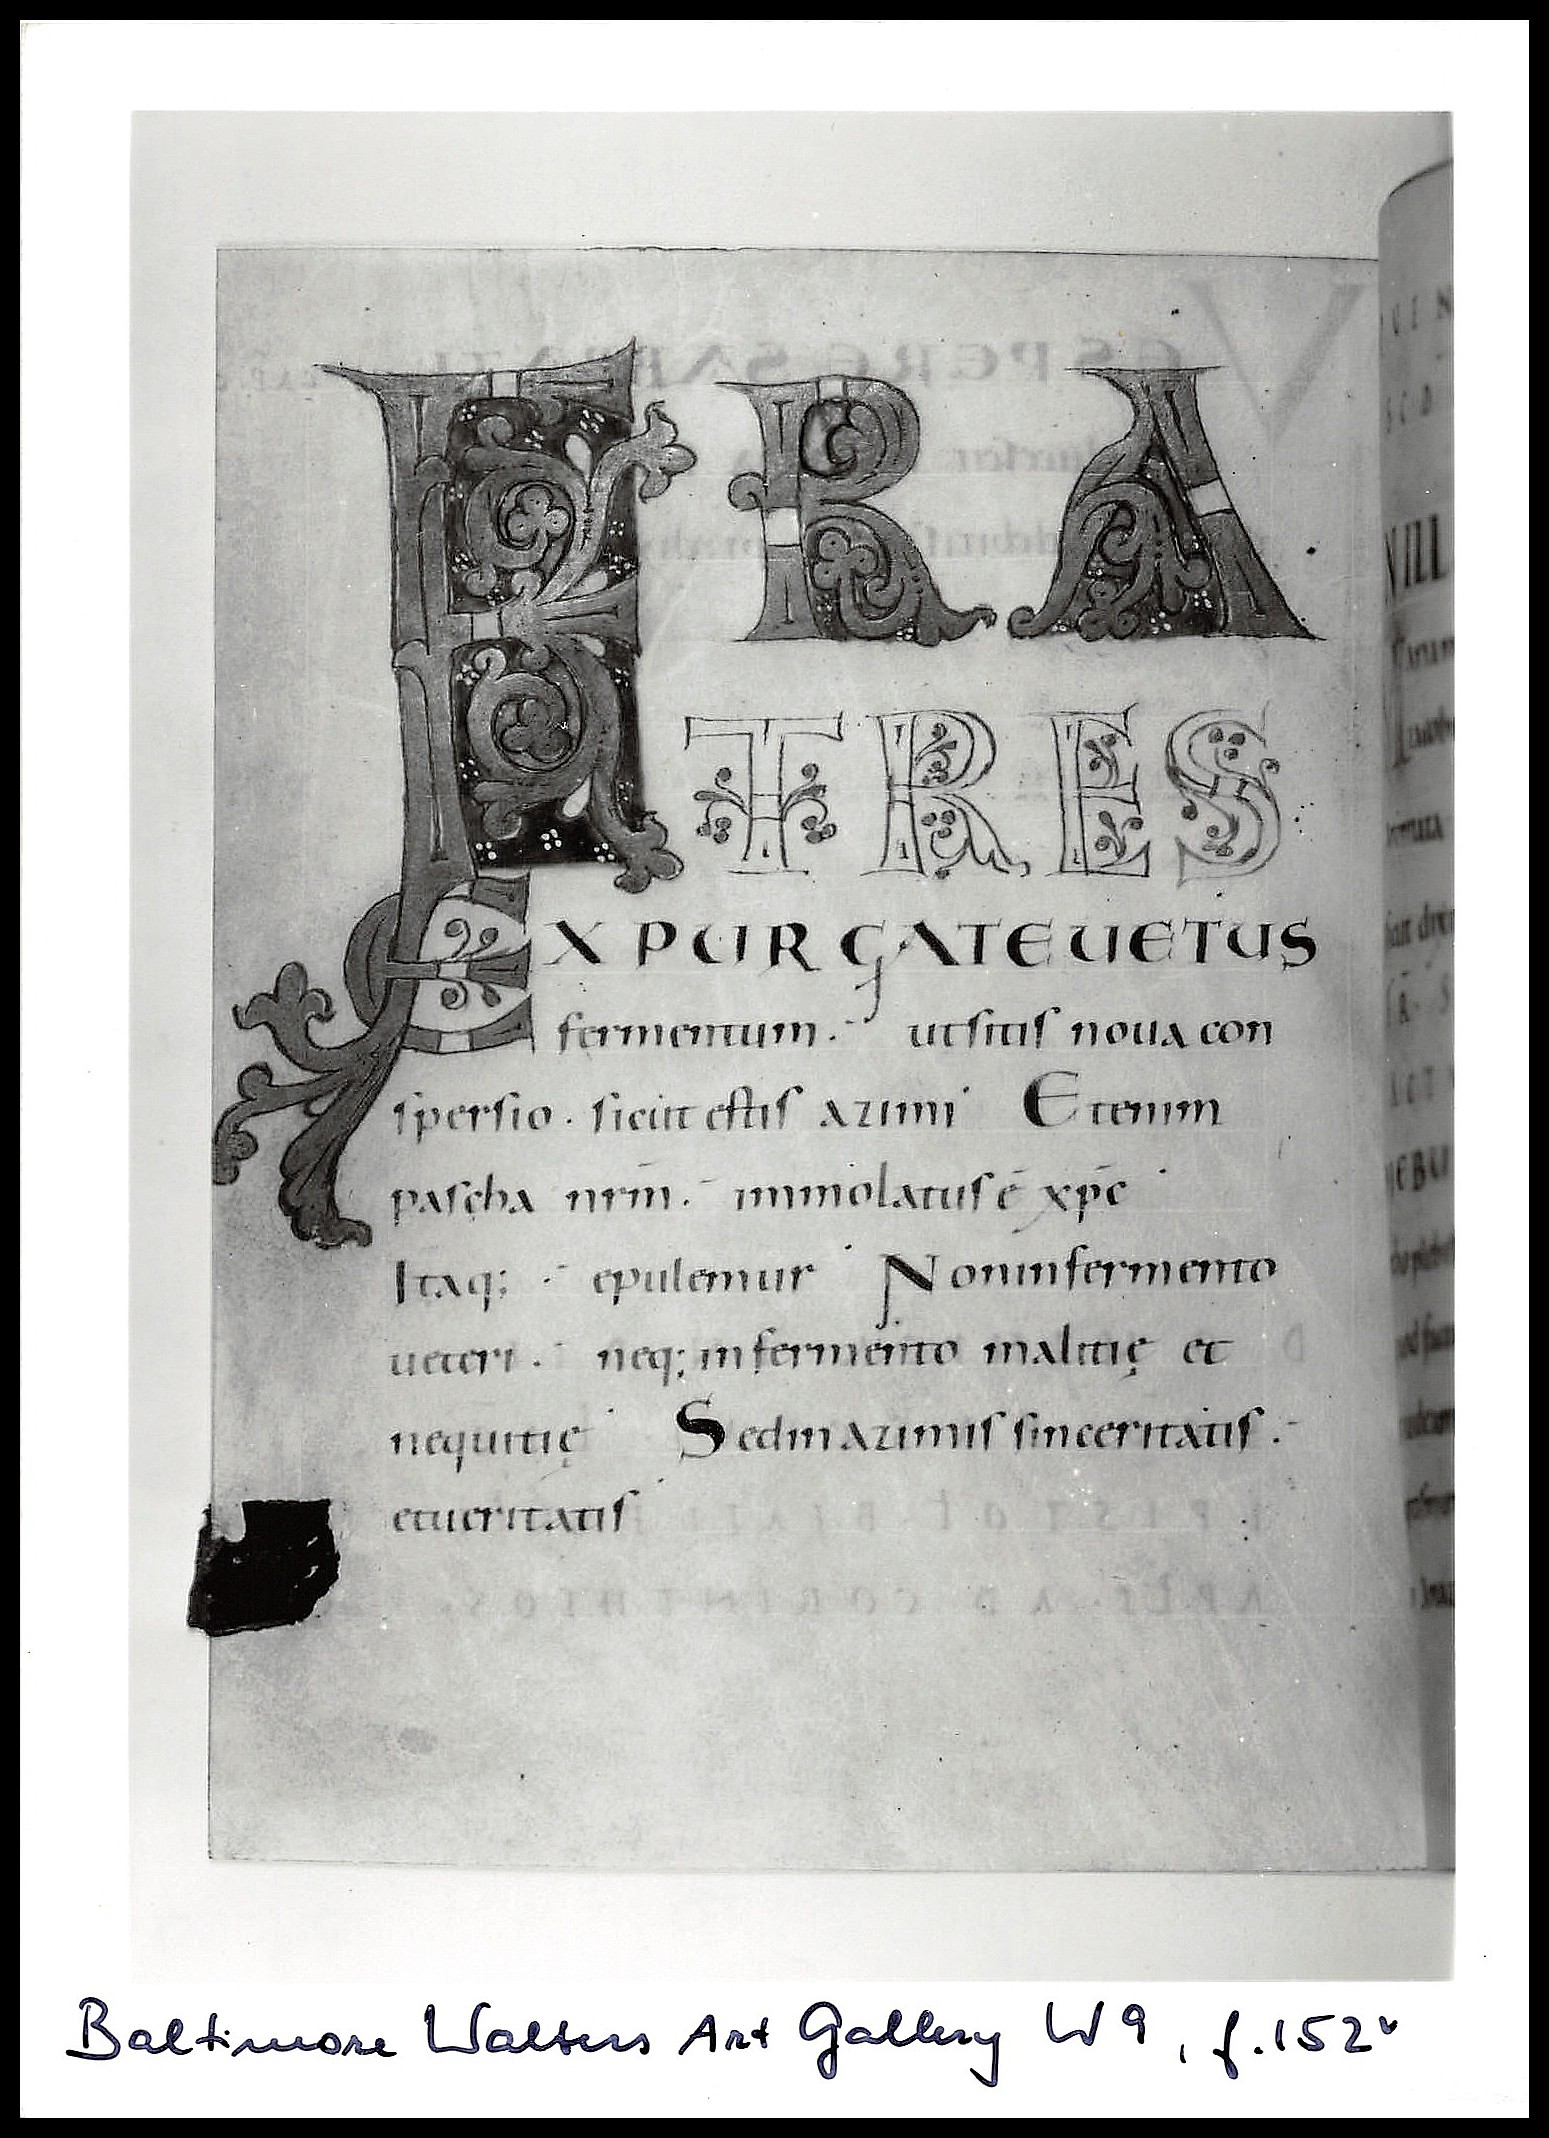 FRA
TRES
EXPURGATE UETUS
fermentum. ut sitis noua con
spersio. sicut estis azimi Etenim
pascha nr̄m. immolatus ē xp̄c
Itaq; epulemur Non in fermento
ueteri. neq; in fermento malitię et
nequitię Sed in azimis sinceritatis.
et ueritatis
Baltimore Walters Art Gallery W9, f.152v